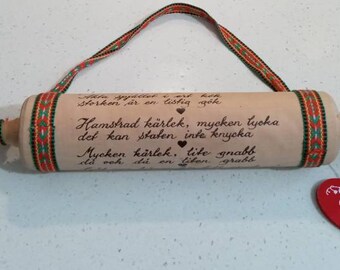 storken är en listig gök
Hamstrad kärlek, mycken tycka
det kan staten inte knycka
Mycken kärlek, lite gnabb
då och då en liten grabb